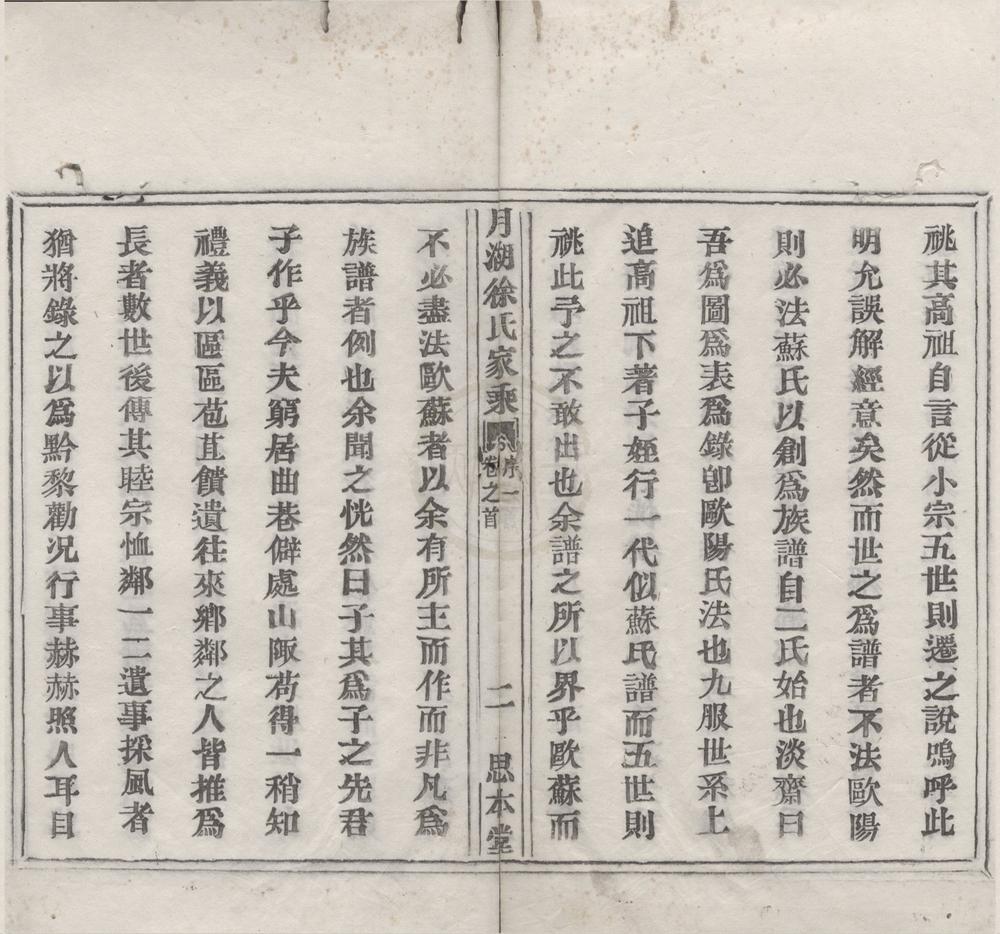 祧其高祖自言從小宗五世則遷之說嗚呼此
明允誤解經意矣然而世之爲譜者不法歐陽
則必法蘇氏以創爲族譜自二氏始也淡齋曰
吾爲圖爲表爲錄卽歐陽氏法也九服世系上
追高祖下著子姪行一代似蘇氏譜而五世則
祧此予之不敢出也余譜之所以界乎歐蘇而
月湖徐氏家乘 序一 卷之首 二 思本堂
不必盡法歐蘇者以余有所主而作而非凡爲
族譜者例也余聞之恍然曰子其爲子之先君
子作乎今夫窮居曲巷僻處山陬苟得一稍知
禮義以區區苞苴饋遺往來鄉鄰之人皆推爲
長者數世後傳其睦宗恤鄰一二遺事採風者
猶將錄之以爲黔黎勸况行事赫赫照人耳目